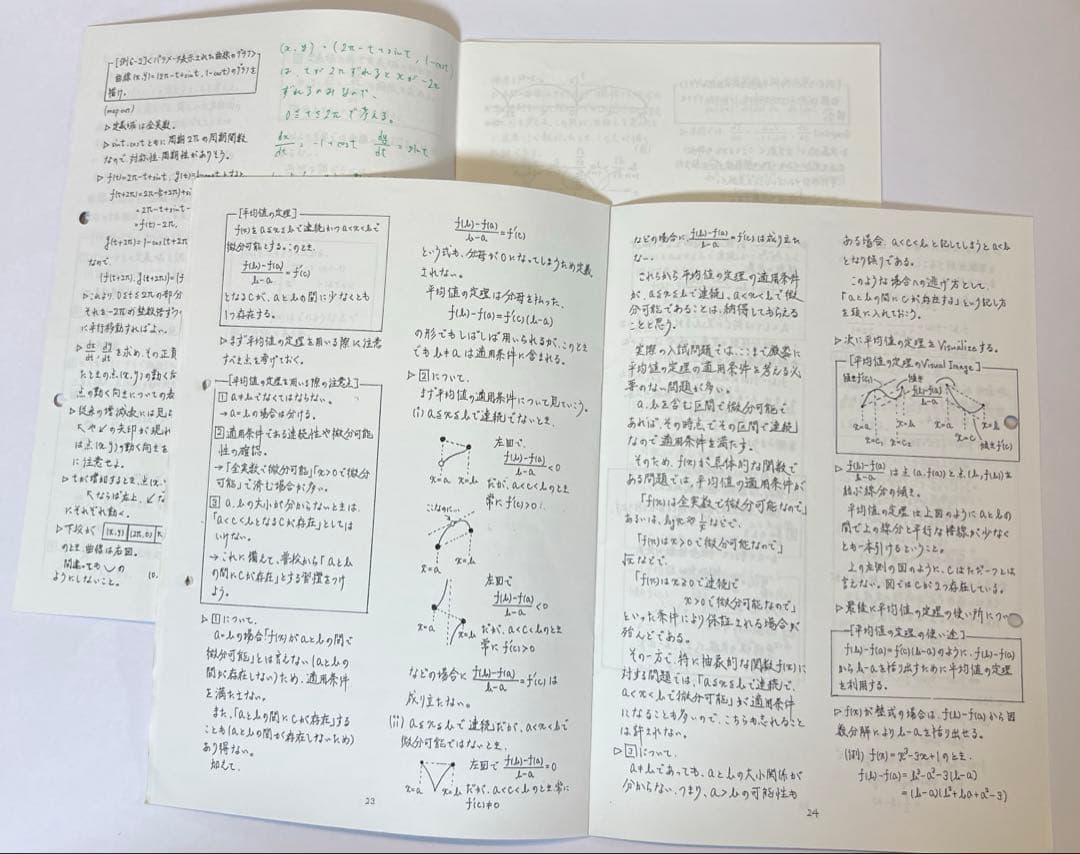 [例6-2]<パラメータ表示された曲線のグラフ>
曲線(x,y)=(2π-t+sint, 1-cost)のグラフを
描け。
(map out)
▷定義域は全実数。
▷sint, costともに周期2πの周期関数
なので、対称性・周期性がありそう。
▷f(t)=2π-t+sint, g(t)=
f(t+2π)=2π-(t+2π)+si
=2π-t+sint-
=f(t)-2π,
g(t+2π)=1-cos(t+2π
なので、
(f(t+2π), g(t+2π))=(f
▷これより0≦t≦2πの部分
それを-2πの整数倍ずつ
に平行移動すればよい。
▷dx/dt, dy/dtを求め、その正負
たときの点(x,y)の動く
点の動く向きについての
▷従来の増減表には見
の矢印が現れ
は点(x,y)の動く向きを
に注意せよ。
▷tが増加すると、点(x,
ならば左上、
にそれぞれ動く。
▷下段が (π,4) (2π,0)
のとき、曲線は右図。
間違っても
ようにしないこと。
(x,y)=(2π-t+sint, 1-cost)
は、tが2πずれるとxが-2π
ずれるのみなので、
0≦t≦2πで考える。
dx/dt=-1+cost dy/dt=sint
[平均値の定理]
f(x)をa≦x≦bで連続かつa<x<bで
微分可能とする。このとき、
f(b)-f(a)/b-a=f'(c)
となるcが、aとbの間に少なくとも
1つ存在する。
▷まず平均値の定理を用いる際に注意
すべき点を挙げておく。
[平均値の定理を用いる際の注意点]
1 a≠bでなくてはならない。
→a=bの場合は分ける。
2 適用条件である連続性や微分可能
性の確認。
→「全実数で微分可能」「x>0で微分
可能」で済む場合が多い。
3 a,bの大小が分からないときは、
「a<c<bとなるcが存在」としては
いけない。
→これに備えて、普段から「aとb
の間にcが存在」とする習慣をつけ
よう。
▷1について。
a=bの場合「f(x)がaとbの間で
微分可能」とは言えない(aとbの
間が存在しない)ため、適用条件
を満たさない。
また、「aとbの間にcが存在」する
ことも(aとbの間が存在しないため)
あり得ない。
加えて、
f(b)-f(a)/b-a=f'(c)
という式も、分母が0になってしまうため定義
されない。
平均値の定理は分母を払った、
f(b)-f(a)=f'(c)(b-a)
の形でもしばしば用いられるが、このとき
でもb≠aは適用条件に含まれる。
▷2について。
まず平均値の定理について見ていこう。
(i) a≦x≦bで連続でないとき、
x=a x=b
左図で
f(b)-f(a)/b-a<0
だが、a<c<bのとき
常にf'(c)>0。
x=a x=b
x=a x=b
左図で
f(b)-f(a)/b-a<0
だが、a<c<bのとき
常にf'(c)>0
などの場合にf(b)-f(a)/b-a=f'(c)は
成り立たない。
(ii) a≦x≦bで連続だが、a<x<bで
微分可能ではないとき、
x=a x=b
左図でf(b)-f(a)/b-a=0
だが、a<c<bのとき常に
f'(c)≠0
23
などの場合に、f(b)-f(a)/b-a=f'(c)は成り立た
ない。
これらから平均値の定理の適用条件
が、a≦x≦bで連続、a<x<bで微
分可能であることは、納得してもらえる
ことと思う。
実際の入試問題では、ここまで厳密に
平均値の定理の適用条件を考える必
要のない問題が多い。
a,bを含む区間で微分可能で
あれば、その時点でその区間で連続
なので適用条件を満たす。
そのため、f(x)が具体的な関数で
ある問題では、平均値の適用条件が
「f(x)は全実数で微分可能なので」
あるいは、logxや1/xなどで、
「f(x)はx>0で微分可能なので」
√xなどで、
「f(x)はx≧0で連続で
x>0で微分可能なので」
といった条件により保証される場合が
殆んどである。
その一方で、特に抽象的な関数f(x)に
対する問題では、「a≦x≦bで連続で、
a<x<bで微分可能」が適用条件
になることも多いので、こちらも忘れること
は許されない。
▷3について。
a≠bであっても、aとbの大小関係が
分からない、つまり、a>bの可能性も
ある場合、a<c<bと記してしまうとa<b
となり誤りである。
このような場合への逃げ方として、
「aとbの間にcが存在する」という記し方
を頭に入れておこう。
▷次に平均値の定理をVisualizeする。
[平均値の定理のVisual Image]
傾きf'(c) 傾き f(b)-f(a)/b-a
x=a x=c₁ x=c₂ x=b x=a x=c x=b
傾きf'(c)
▷f(b)-f(a)/b-aは点(a,f(a))と点(b,f(b))を
結ぶ線分の傾き。
平均値の定理は上図のようにaとbの
間で上の線分と平行な接線が少なく
とも一本引けるということ。
上の左側の図のように、cはただ一つとは
言えない。図ではcが2つ存在している。
▷最後に平均値の定理の使い所につい
[平均値の定理の使い途]
f(b)-f(a)=f'(c)(b-a)のように、f(b)-f(a)
からb-aを括り出すために平均値の定理
を利用する。
▷f(x)が整式の場合は、f(b)-f(a)から因
数分解によりb-aを括り出せる。
(例) f(x)=x³-3x+1のとき、
f(b)-f(a)=b³-a³-3(b-a)
=(b-a)(b²+ba+a²-3)
24